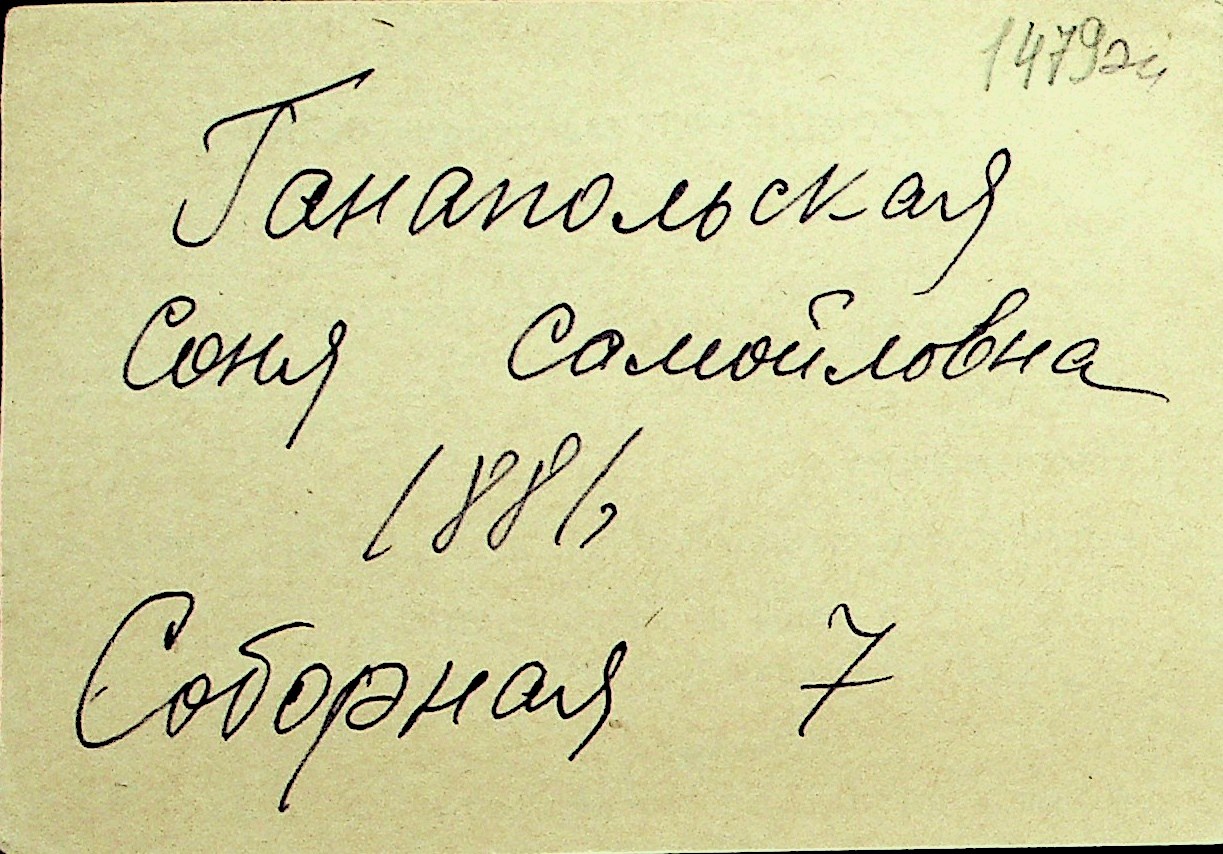 1479
Ганапольская
Соня Самойловна
1886
Соборная 7